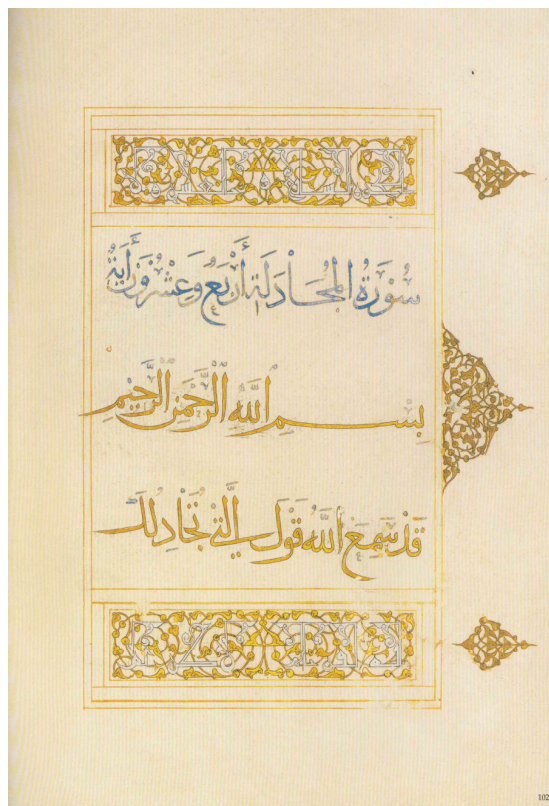 سُورَةُ الْمُجَادَلَةِ أَرْبَعٌ وَعِشْرُونَ أَيَةً
بِسْمِ اللَّهِ الرَّحْمَنِ الرَّحِيمِ
قَدْ سَمِعَ اللَّهُ قَوْلَ الَّتِي تُجَادِلُكَ
102